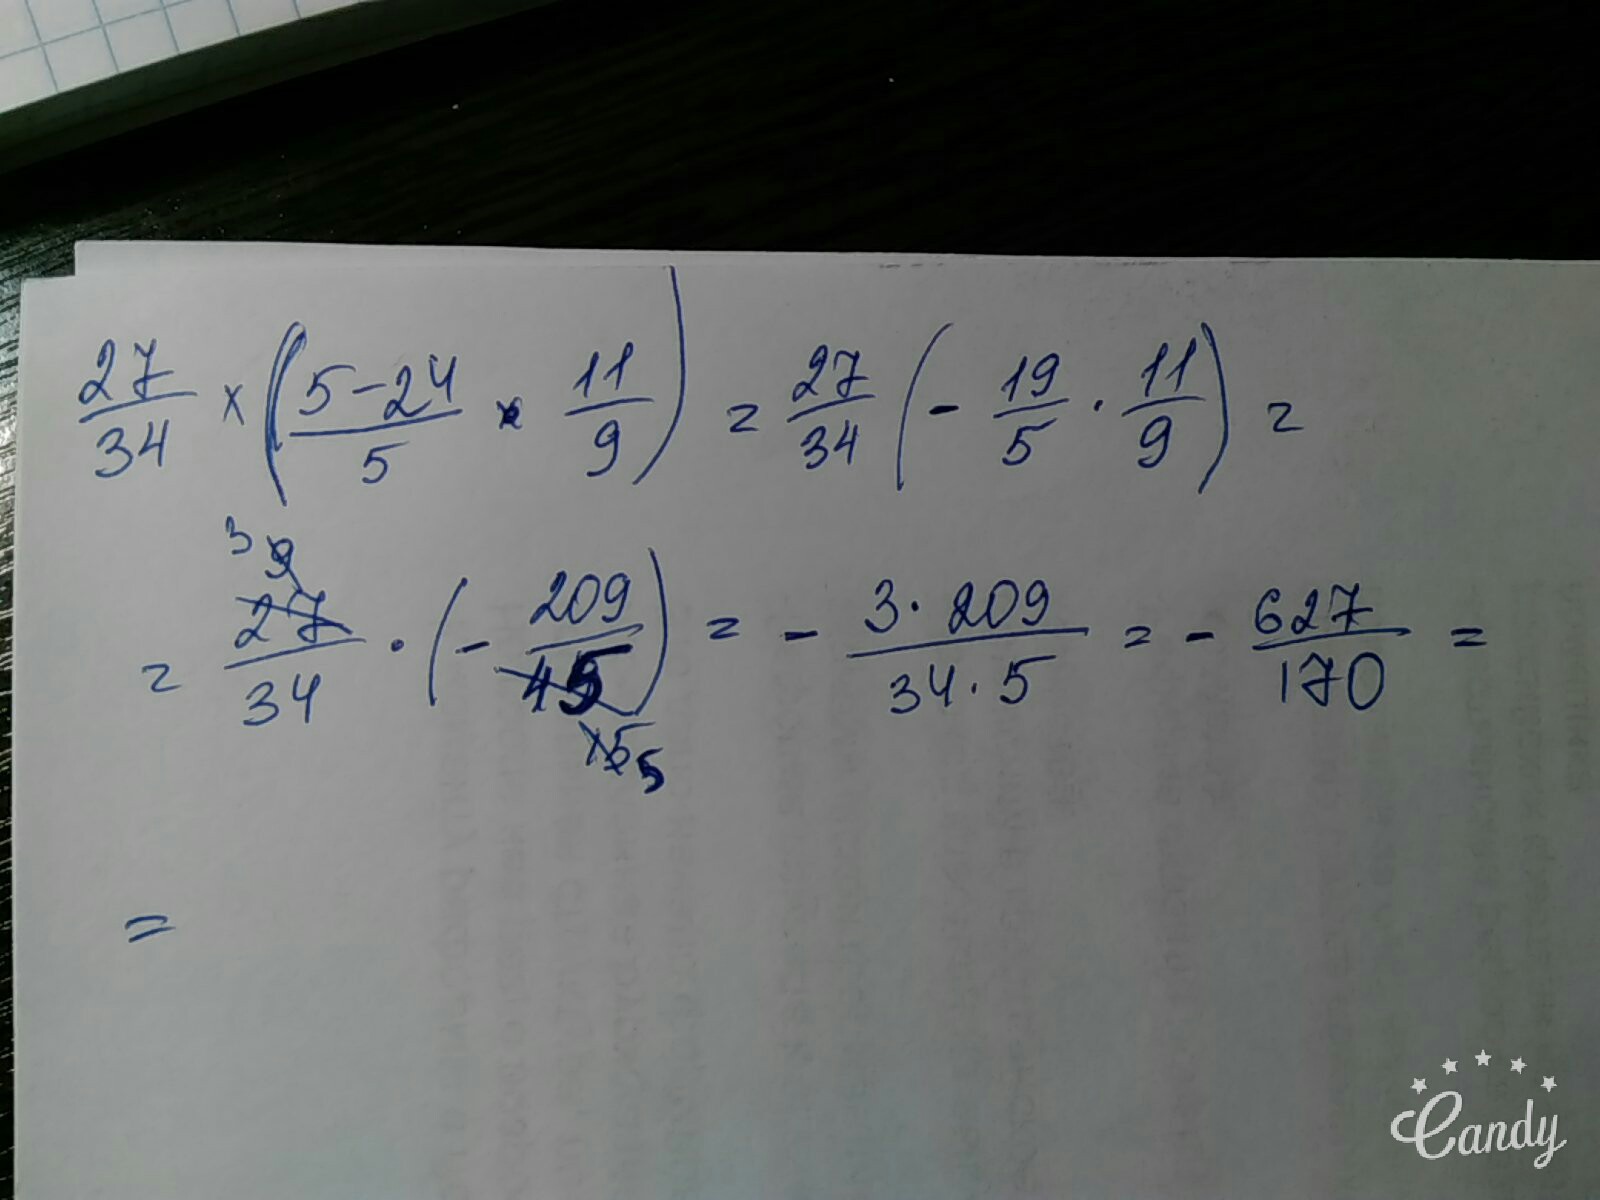 27/34 × (5-24/5 × 11/9) = 27/34 (- 19/5 · 11/9) =
= 3 9 27/34 · (- 209/45 15 5) = - 3·209/34·5 = - 627/170 =
=
Candy